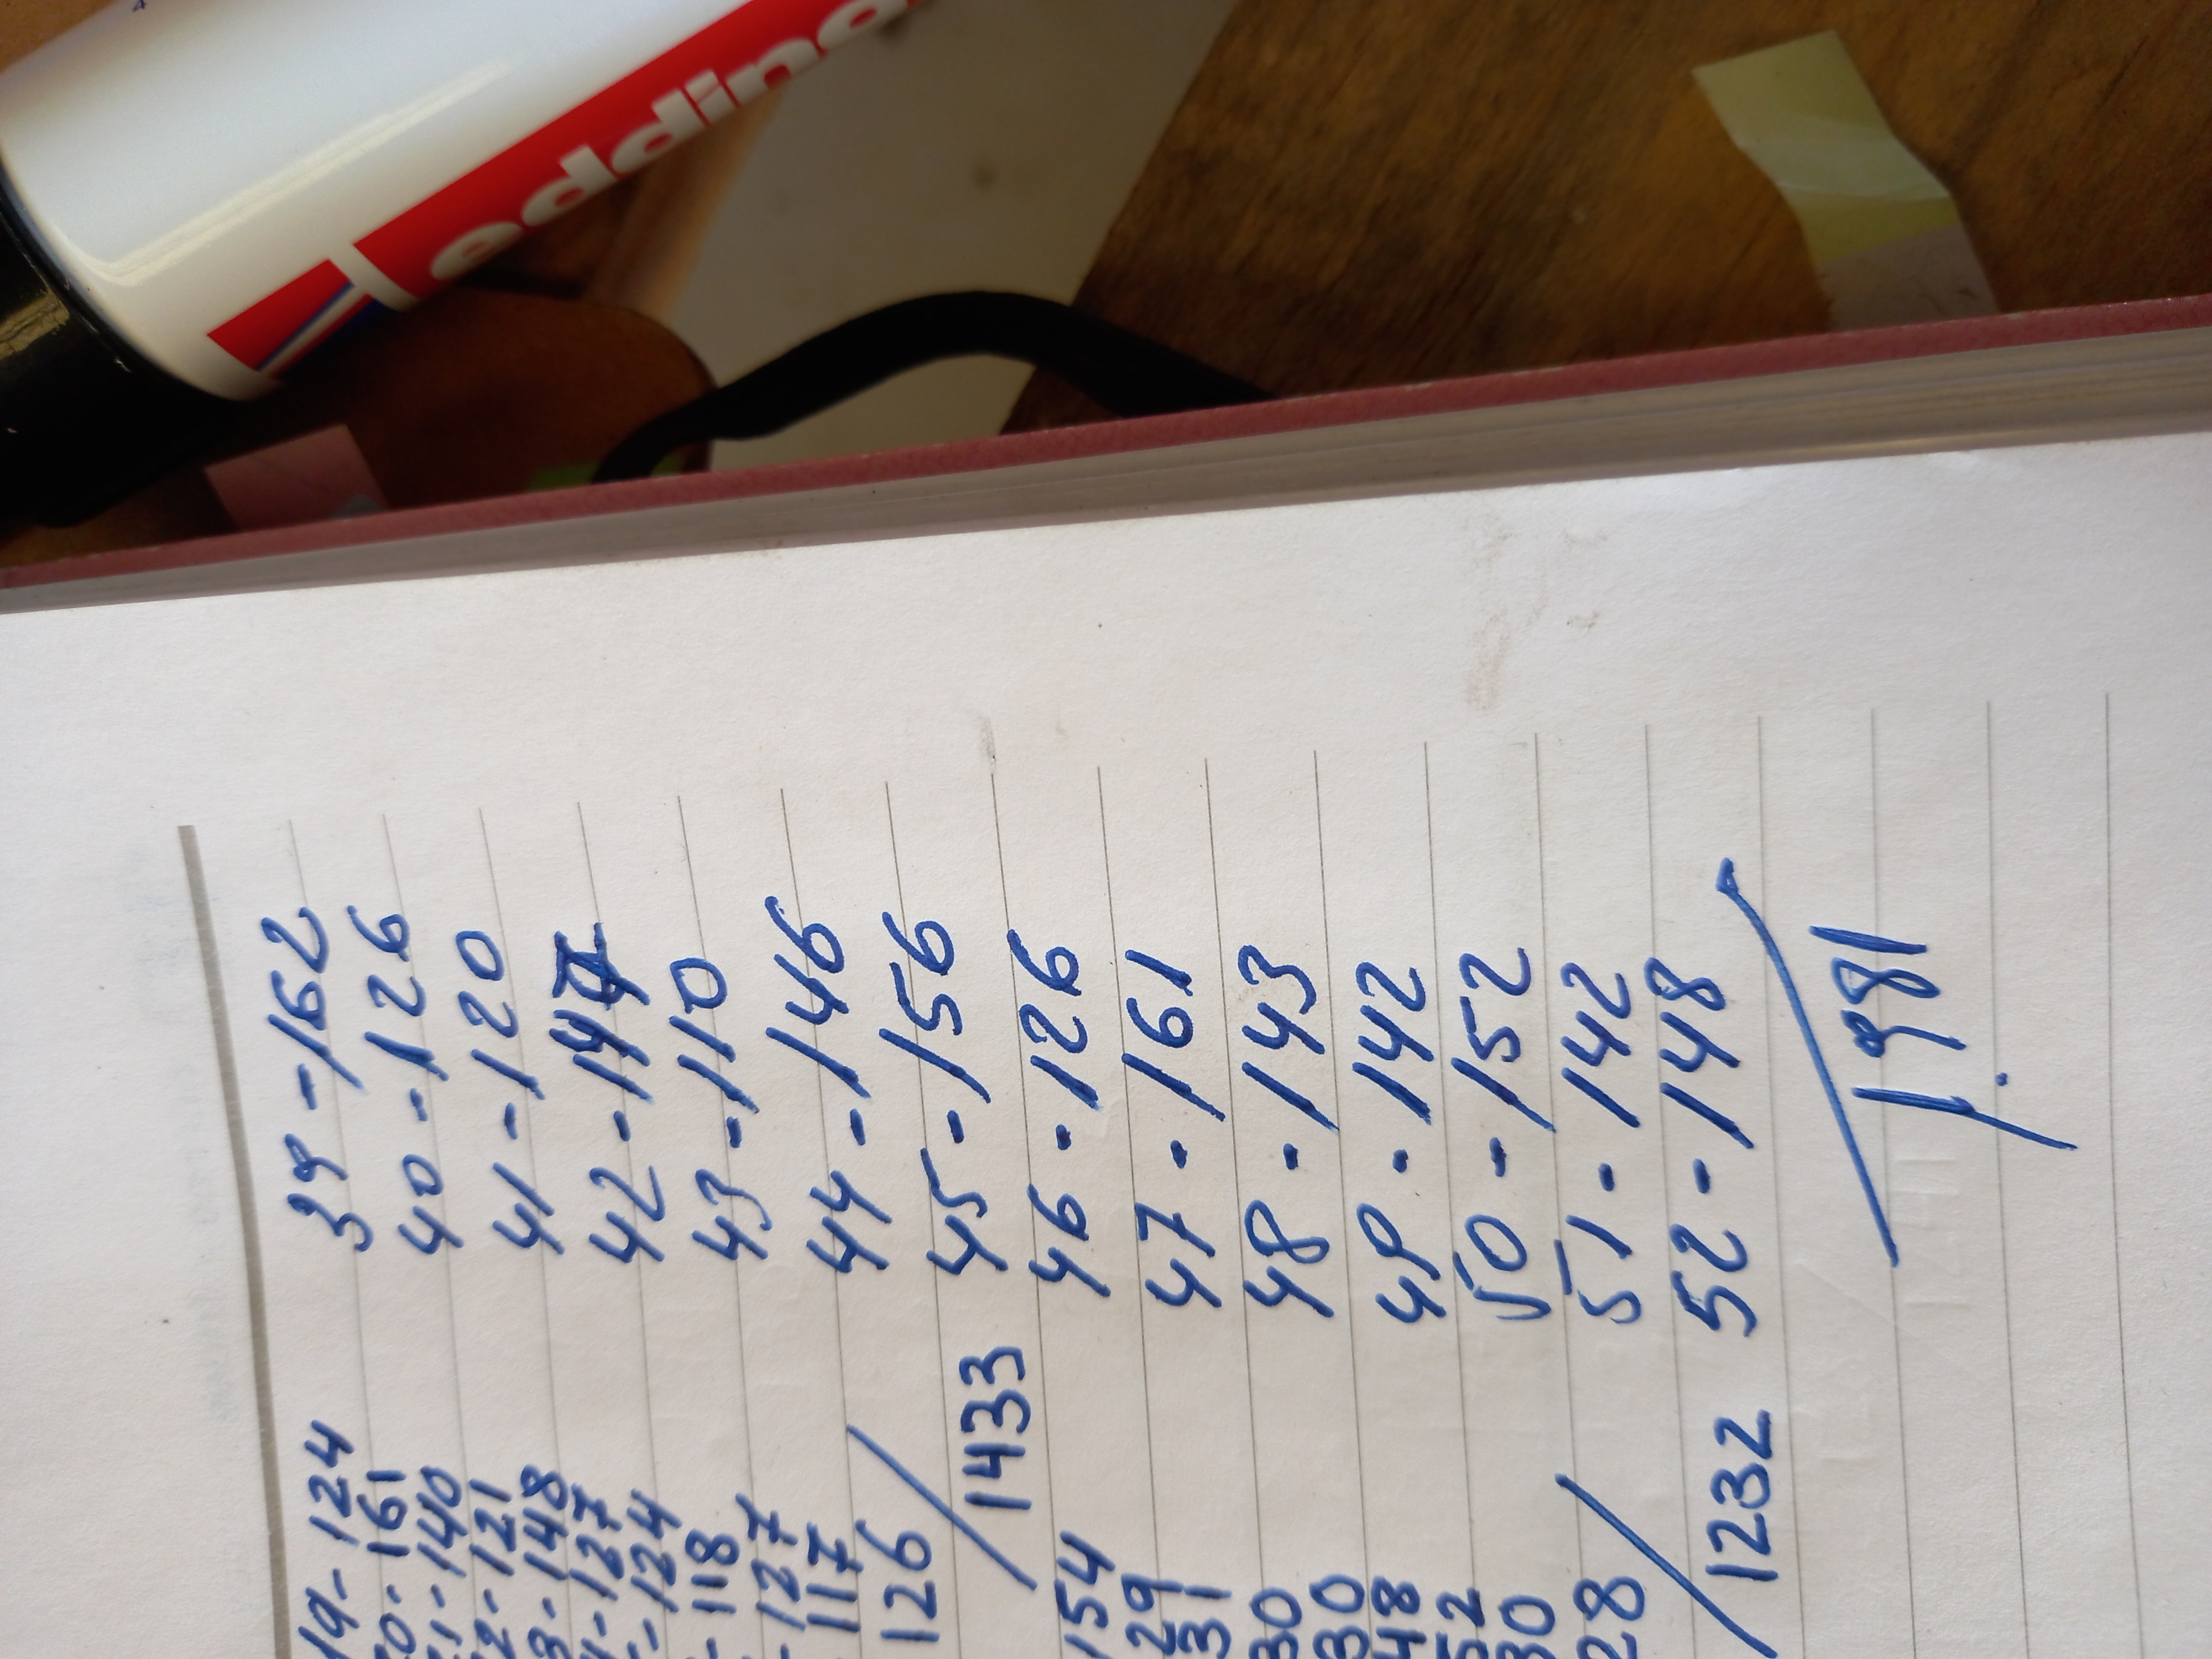 edding
19-124
0-161
1-140
2-121
3-148
-127
-124
-118
-127
117
126
/1433
154
29
31
30
30
48
52
30
28
/1232
39-162
40-126
41-120
42-147
43-110
44-146
45-156
46-126
47-161
48-143
49-142
50-152
51-142
52-148
1.981